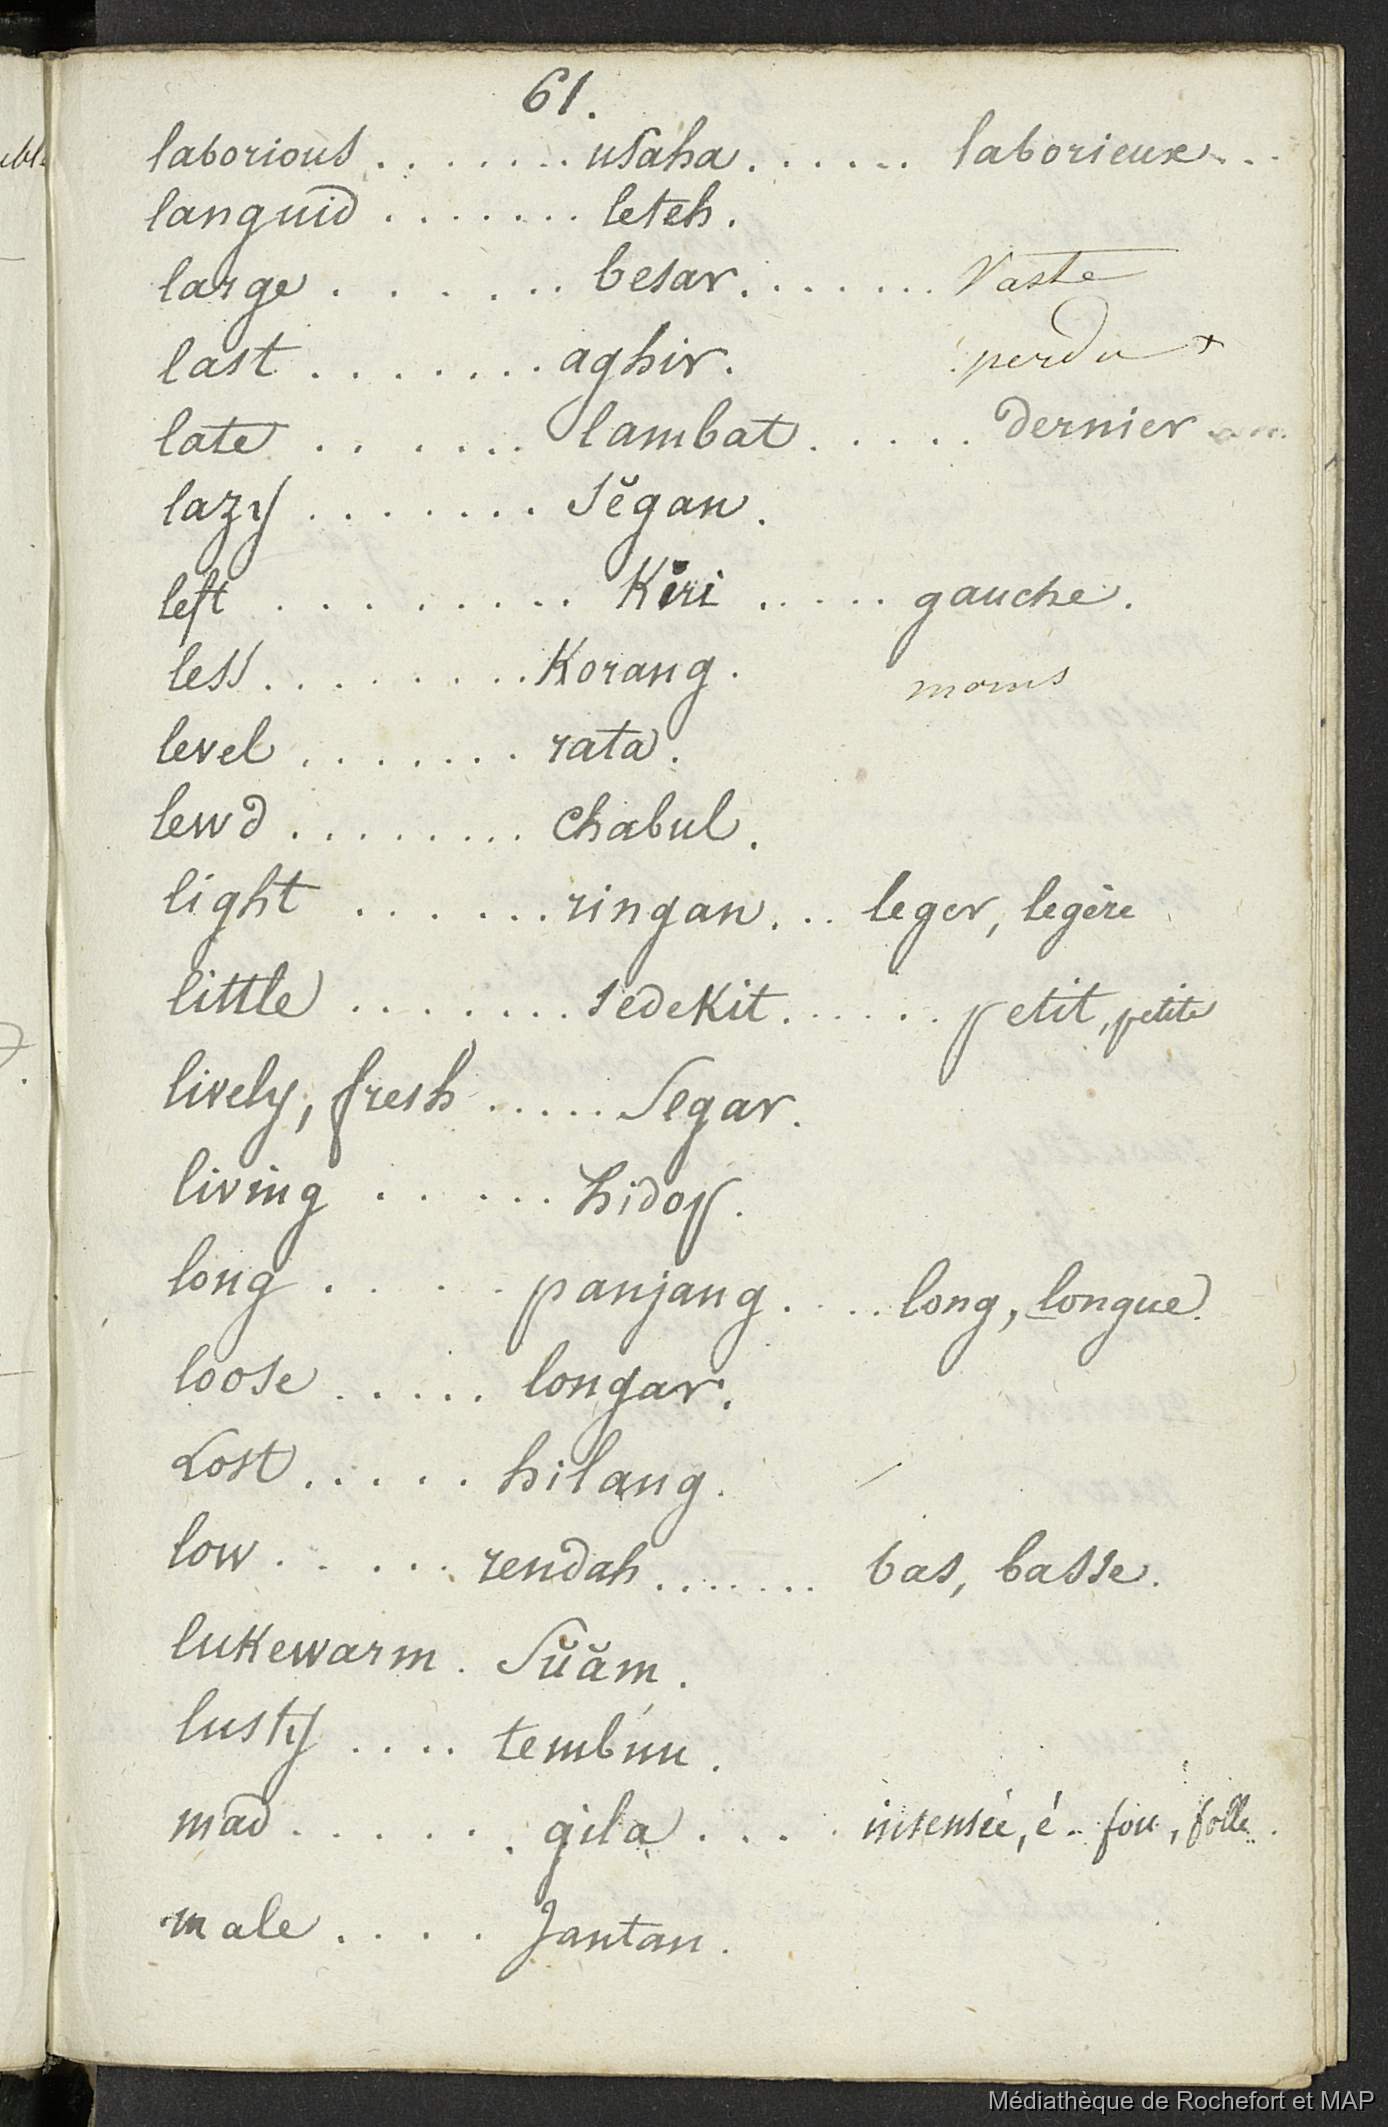 61.
laborious . . . . . . . usaha . . . . . . laborieux . . .
languid . . . . . . . leteh.
large . . . . . . besar . . . . . . . Vaste
last . . . . . . . aghir. perdu +
late . . . . . . lambat . . . . . dernier
lazy . . . . . . . sĕgan.
left . . . . . . . . . Kĭri . . . . . gauche.
less . . . . . . . . Korang. moins
level . . . . . . . rata.
lewd . . . . . . . . Chabul.
light . . . . . . ringan . . . leger, legère
little . . . . . . . sedekit . . . . . . petit, petite
lively, fresh . . . . . Segar.
living . . . . . . hidop.
long . . . . . panjang . . . . long, longue.
loose . . . . . longar.
Lost . . . . . hilang.
low . . . . . rendah . . . . . . . bas, basse.
lukewarm . Sŭăm.
lusty . . . . tembun.
mad . . . . . . . gila . . . . insensée, é - fou, folle.
male . . . . Jantan.
Médiathèque de Rochefort et MAP